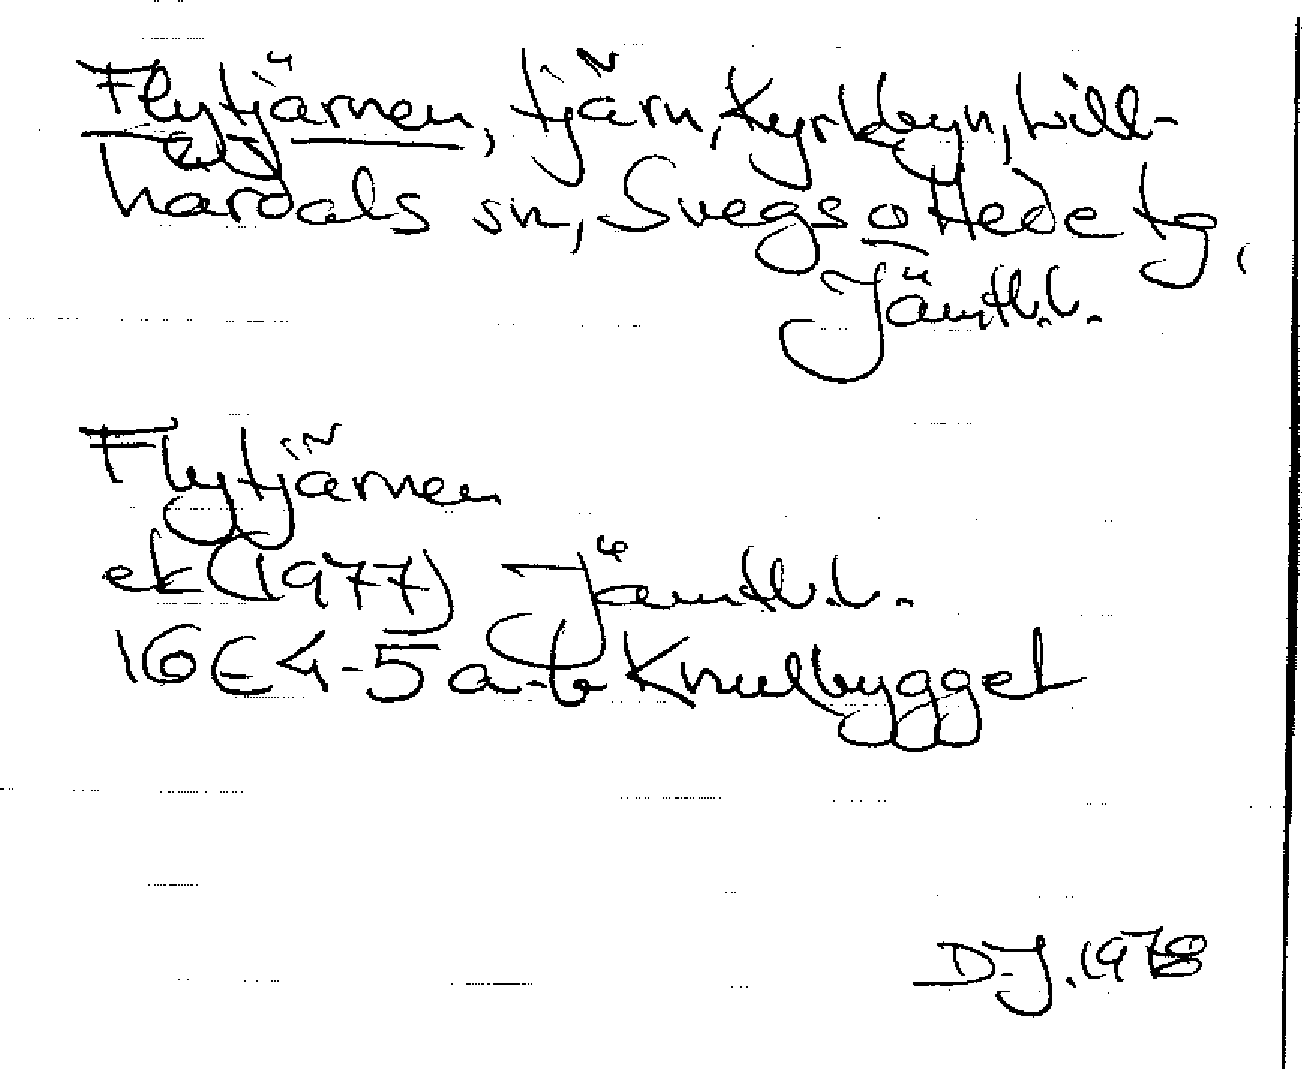 Flytjärnen, tjärn, Kyrkbyn, Lill-
hardals sn, Svegs o Hede tg,
Jämtl.l.
Flytjärnen
ek (1977) Jämtl.l.
16E 4-5 a-b Knulbygget
D.J. 1978